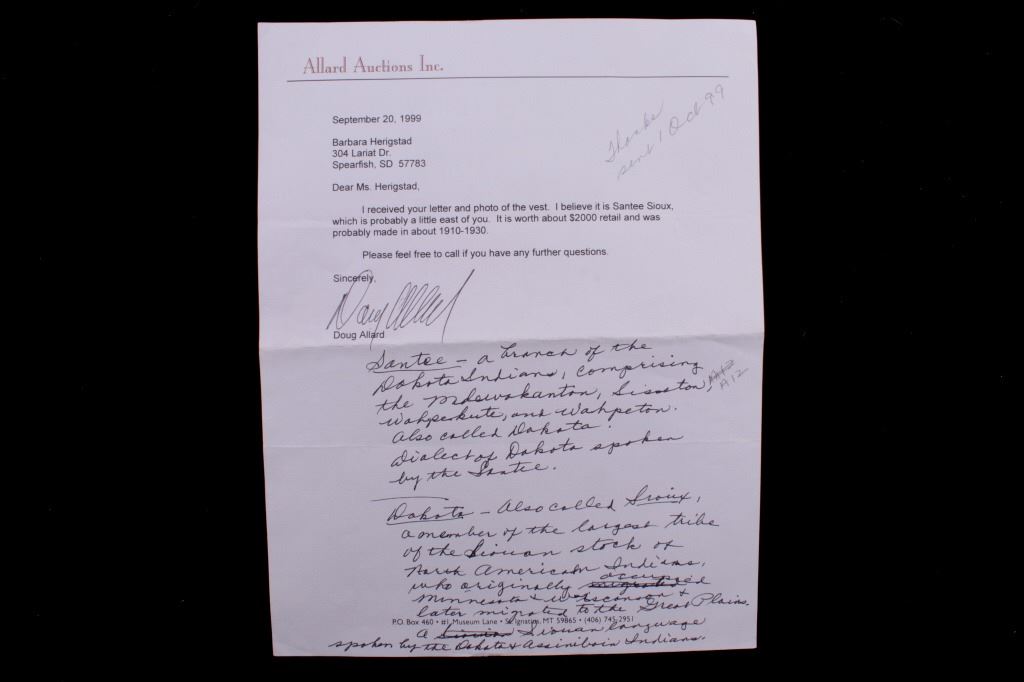 Allard Auctions Inc.
September 20, 1999
Thanks
sent 1 Oct 99
Barbara Herigstad
304 Lariat Dr.
Spearfish, SD 57783
Dear Ms. Herigstad,
I received your letter and photo of the vest. I believe it is Santee Sioux,
which is probably a little east of you. It is worth about $2000 retail and was
probably made in about 1910-1930.
Please feel free to call if you have any further questions.
Sincerely,
Doug Allard
Doug Allard
Santee - a branch of the
Dakota Indians, comprising
the Mdewakanton, Sisseton,
A12
Wahpekute, and Wahpeton.
Also called Dakota.
Dialect of Dakota spoken
by the Santee.
Dakota - Also called Sioux,
a member of the largest tribe
of the Siouan stock of
North American Indians,
who originally occupied
Minnesota & Wisconsin &
later migrated to the Great Plains.
P.O. Box 460 • #1 Museum Lane • St. Ignatius, MT 59865 • (406) 745-2951
a Siouan language
spoken by the Dakota & Assiniboin Indians.